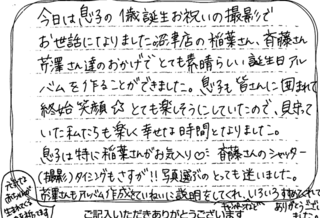 今日は息子の1歳誕生お祝いの撮影で
お世話になりました。沼津店の稲葉さん、斉藤さん
芹澤さん達のおかげでとても素晴らしい誕生日アル
バムを作ることができました。息子も皆さんに囲まれて
終始笑顔☆とても楽しそうにしていたので、見守って
いた私たちも楽しく幸せな時間となりました。
息子は特に稲葉さんがお気入り♡ 斉藤さんのシャッター
(撮影)タイミングもさすが!!写真選びのとっても迷いました。
芹澤さんもアルバム作成をていねいに説明をしてくれ、いろいろ
ありがとう
ございました
ご記入いただきありがとうございます